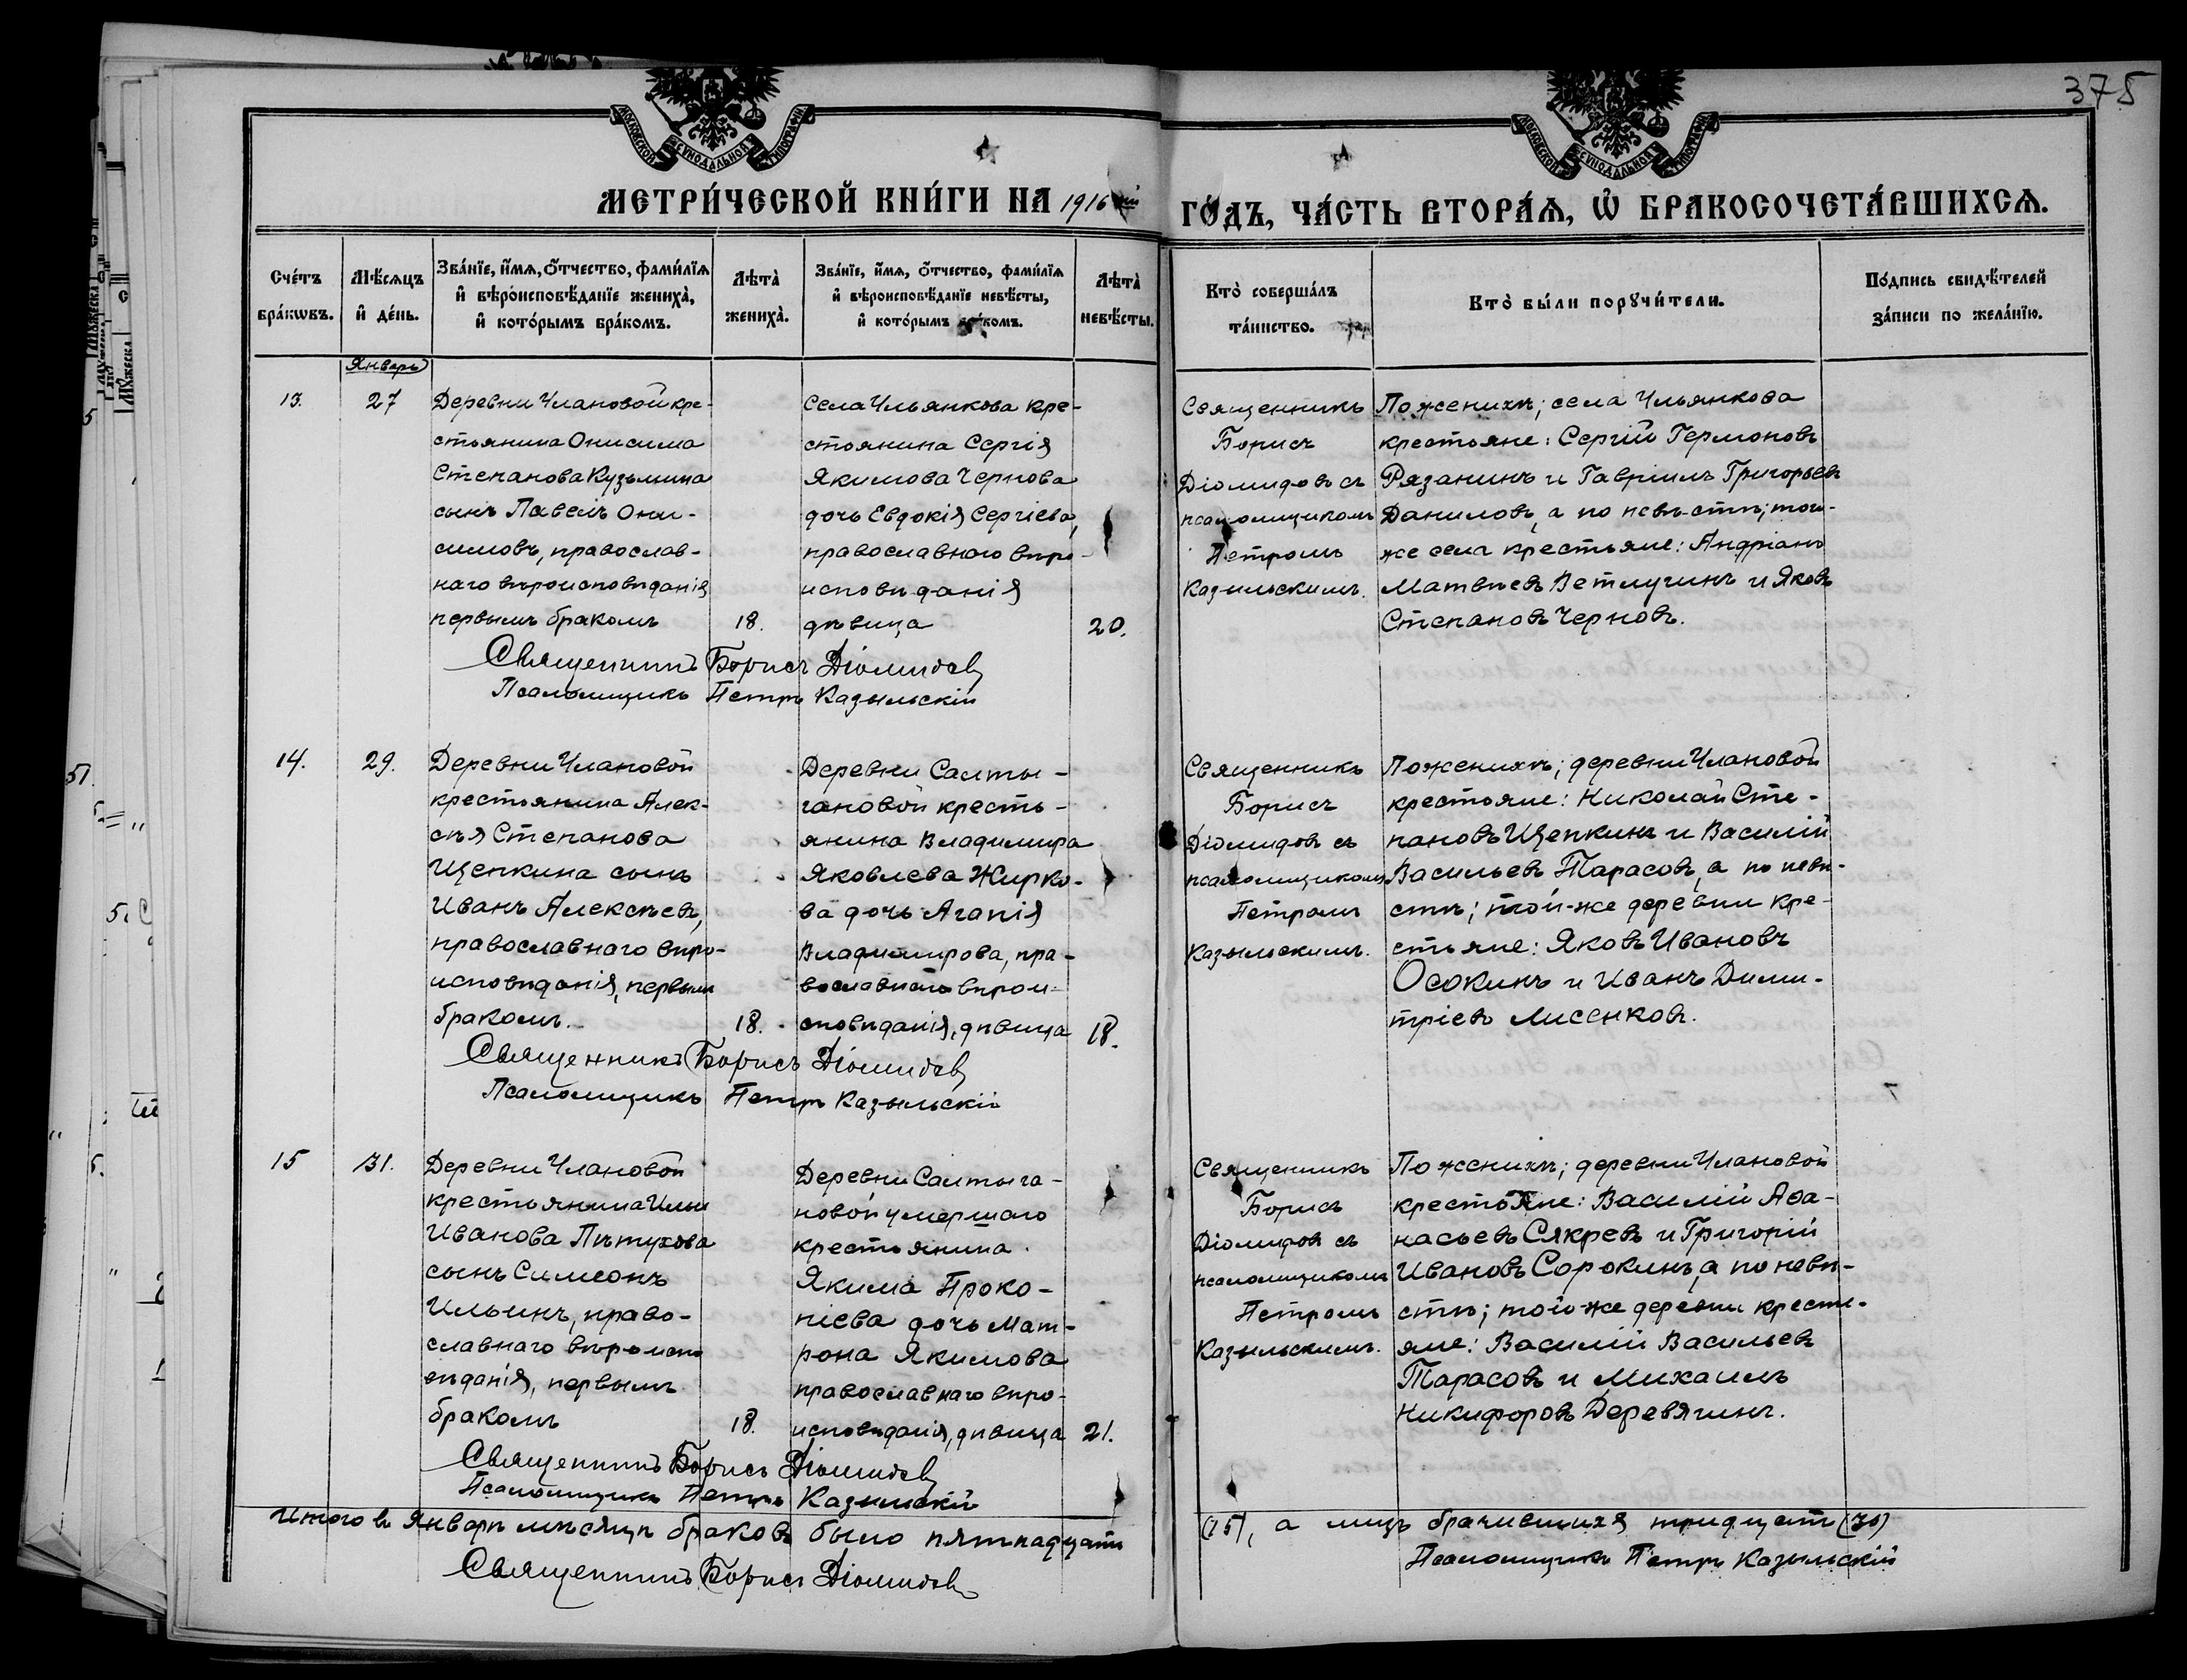 375
МОСКОВСКОЙ СѴНОДАЛЬНОЙ ТИПОГРАФІИ
МОСКОВСКОЙ СѴНОДАЛЬНОЙ ТИПОГРАФІИ
МЕТРИ́ЧЕСКОЙ КНИ́ГИ НА 1916й
ГО́ДЪ, ЧА́СТЬ ВТОРА́Ѧ, Ѡ҆ БРАКОСОЧЕТА́ВШИХСѦ.
Сче́тъ
бра́кѡвъ.
Мѣ́сяцъ
и҆ де́нь.
Зва́нїе, и҆́мѧ, ѻ҆́тчество, фами́лїѧ
и҆ вѣроисповѣ́данїе жениха̀,
и҆ кото́рымъ бра́комъ.
Лѣта̀
жениха̀.
Зва́нїе, и҆́мѧ, ѻ҆́тчество, фами́лїѧ
и҆ вѣроисповѣ́данїе невѣ́сты,
и҆ кото́рымъ бра́комъ.
Лѣта̀
невѣ́сты.
Кто̀ соверша́лъ
та́инство.
Кто̀ бы́ли порꙋчи́тели.
По́дпись свидѣ́телей
за́писи по жела́нїю.
Январь
13.
27
Деревни Улановой кре-
стьянина Онисима
Степанова Кузьмина
сынъ Павелъ Они-
симовъ, православ-
наго вѣроисповѣданія
первымъ бракомъ
18.
Села Ульянкова кре-
стьянина Сергія
Якимова Чернова
дочь Евдокія Сергіева,
православнаго вѣро-
исповѣданія
дѣвица
20.
Священникъ
Борисъ
Діомидовъ съ
псаломщикомъ
Петромъ
Казыльскимъ.
По женихѣ; села Ульянкова
крестьяне: Сергій Гермоновъ
Рязанинъ и Гавріилъ Григорьевъ
Даниловъ, а по невѣстѣ; того-
же села крестьяне: Андріанъ
Матвѣевъ Ветлугинъ и Яковъ
Степановъ Черновъ.
Священникъ Борисъ Діомидовъ
Псаломщикъ Петръ Казыльскій
14.
29.
Деревни Улановой
крестьянина Алек-
сѣя Степанова
Щепкина сынъ
Иванъ Алексѣевъ,
православнаго вѣро-
исповѣданія, первымъ
бракомъ.
18.
Деревни Салты-
гановой кресть-
янина Владимира
Яковлева Жирко-
ва дочь Агапія
Владимирова, пра-
вославнаго вѣрои-
сповѣданія, дѣвица
18.
Священникъ
Борисъ
Діомидовъ съ
псаломщикомъ
Петромъ
Казыльскимъ.
По женихѣ; деревни Улановой
крестьяне: Николай Сте-
пановъ Щепкинъ и Василій
Васильевъ Тарасовъ, а по невѣ-
стѣ; той-же деревни кре-
стьяне: Яковъ Ивановъ
Осокинъ и Иванъ Дими-
тріевъ Лисенковъ.
Священникъ Борисъ Діомидовъ
Псаломщикъ Петръ Казыльскій
15
31.
Деревни Улановой
крестьянина Ильи
Иванова Пѣтухова
сынъ Симеонъ
Ильинъ, право-
славнаго вѣроиспо
вѣданія, первымъ
бракомъ
18.
Деревни Салтыга-
новой умершаго
крестьянина
Якима Проко-
піева дочь Мат-
рона Якимова
православнаго вѣро-
исповѣданія, дѣвица
21.
Священникъ
Борисъ
Діомидовъ съ
псаломщикомъ
Петромъ
Казыльскимъ.
По женихѣ; деревни Улановой
крестьяне: Василій Аѳа-
насьевъ Сякревъ и Григорій
Ивановъ Сорокинъ, а по невѣ-
стѣ; той-же деревни кресть-
яне: Василій Васильевъ
Тарасовъ и Михаилъ
Никифоровъ Деревягинъ.
Священникъ Борисъ Діомидовъ
Псаломщикъ Петръ Казыльскій
Итого въ Январѣ мѣсяцѣ браковъ было пятнадцать (15), а лицъ брачившихся тридцать (30)
Священникъ Борисъ Діомидовъ
Псаломщикъ Петръ Казыльскій